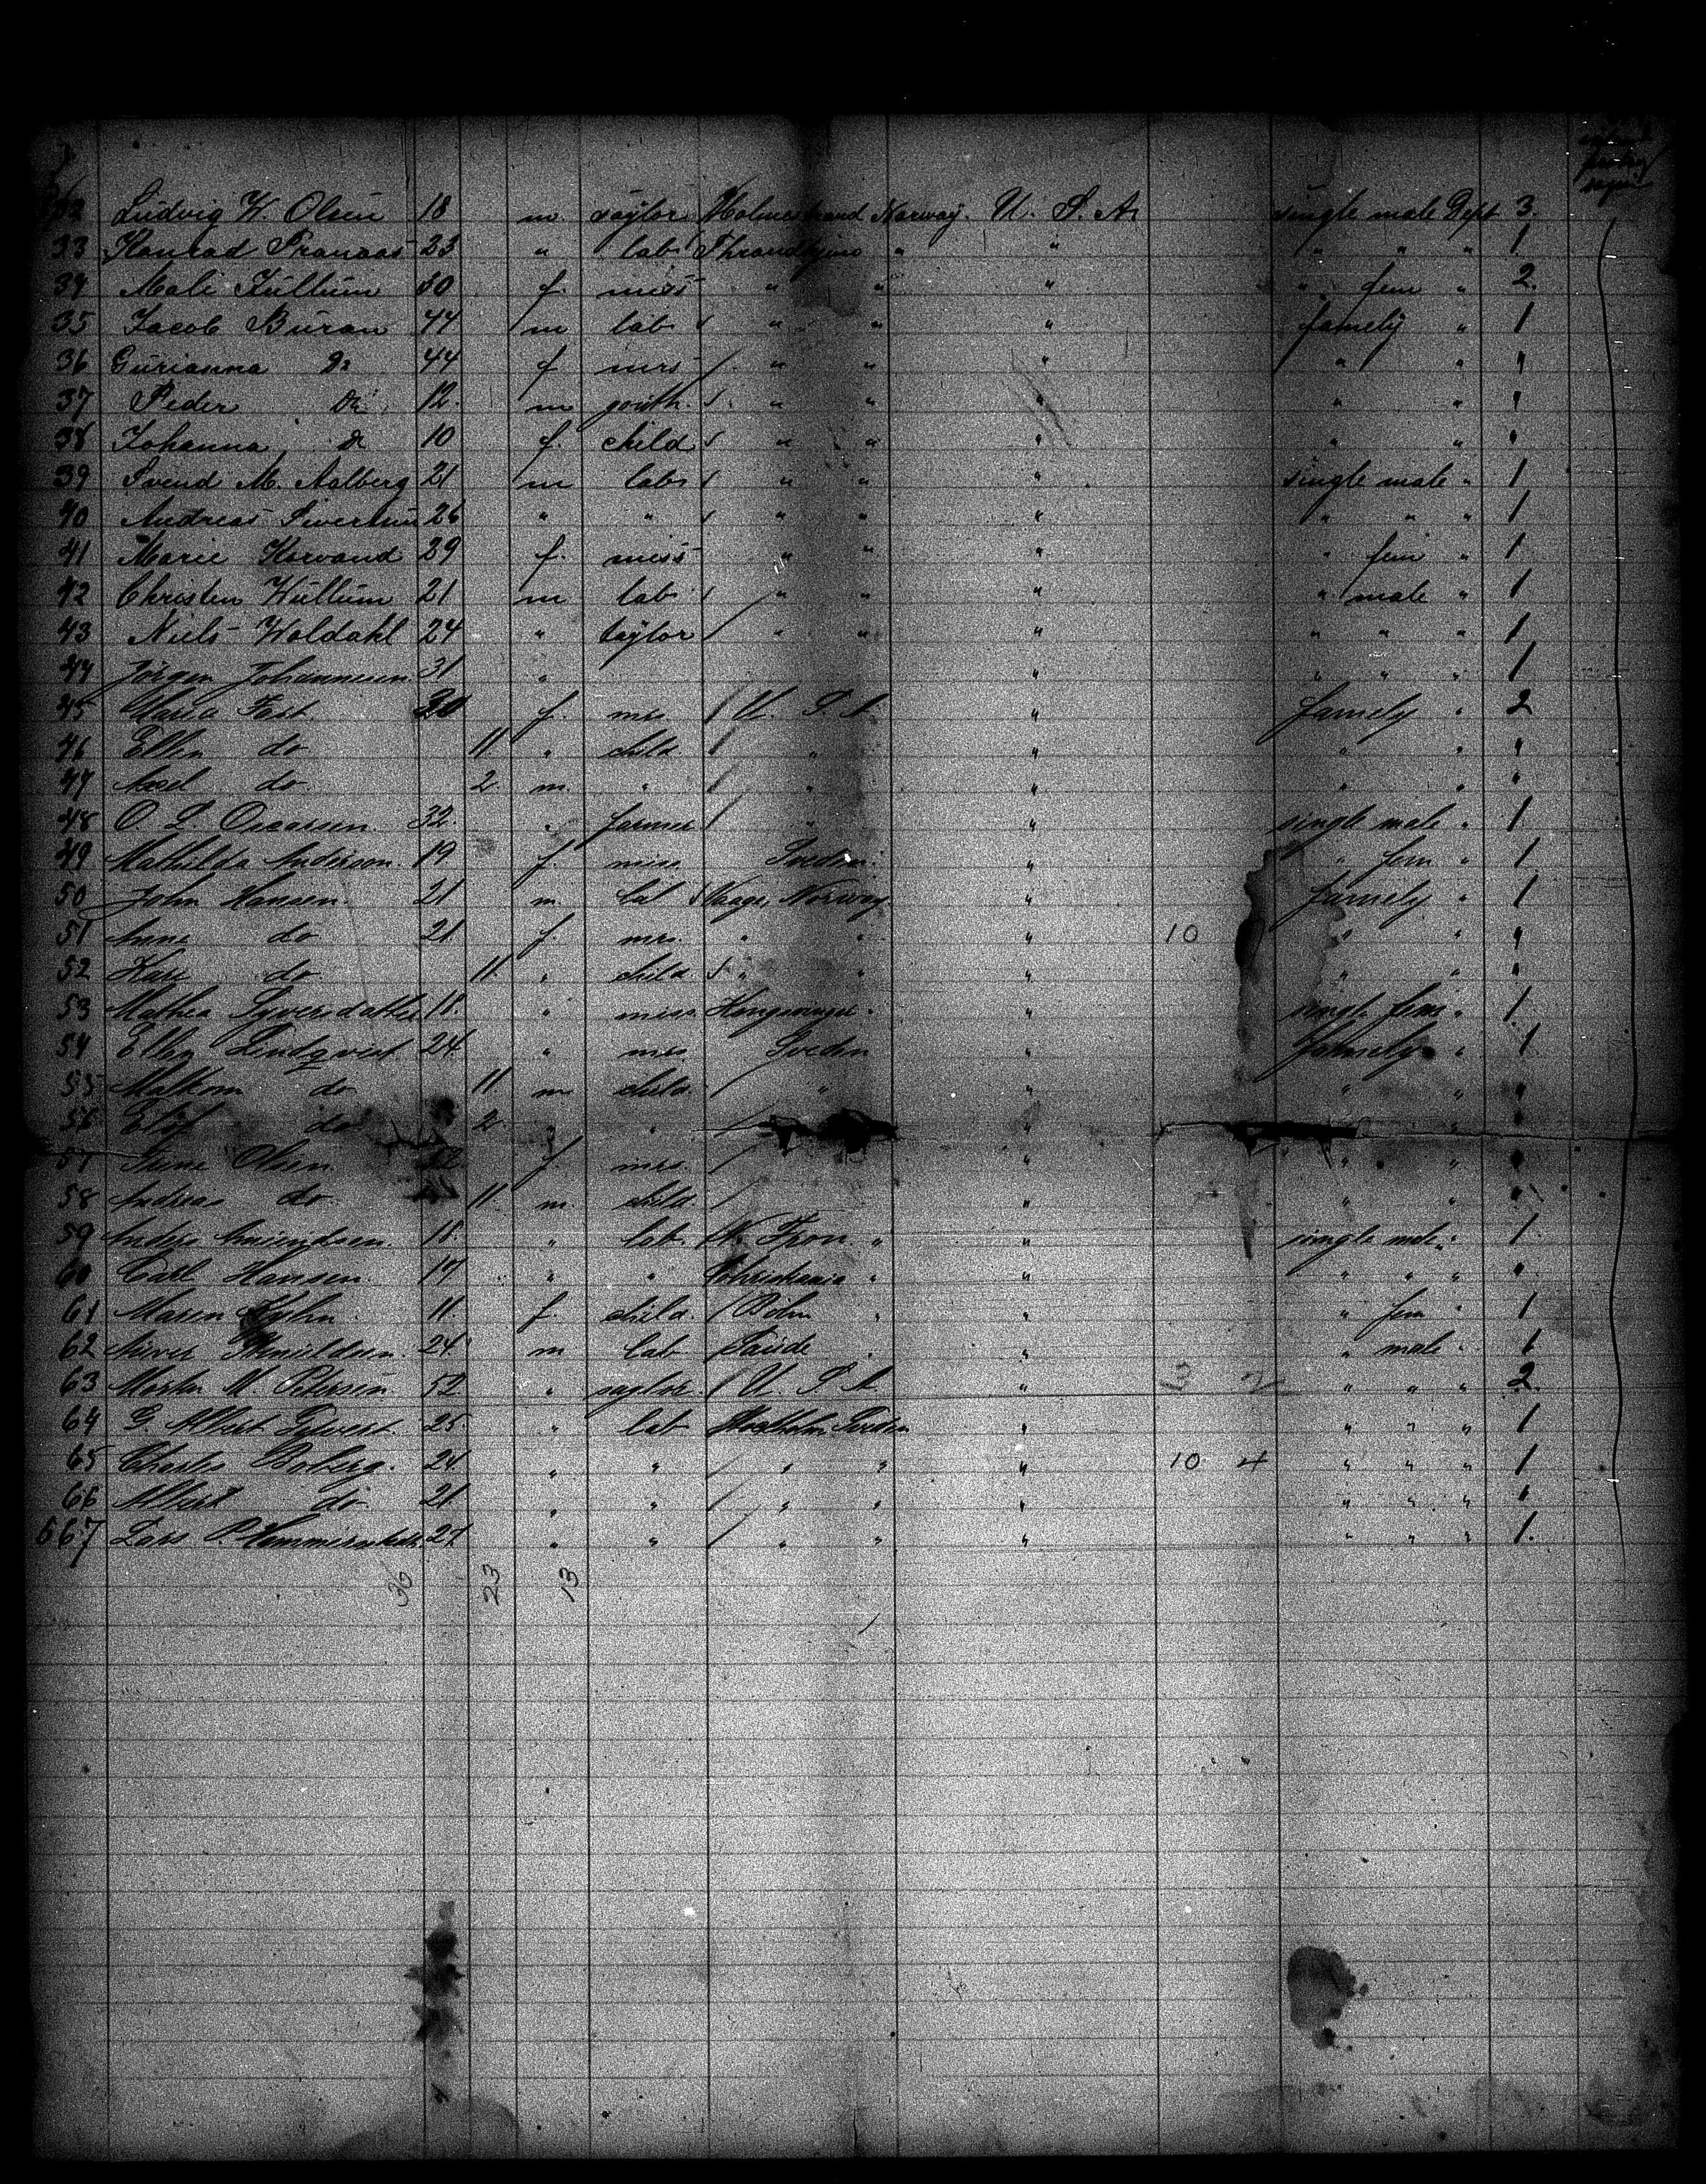 Ludvig W. Olsen 18 m. saylor Holmestrand Norway. U. S. A. single male Dept 3.
33 Konrad 23 " lab Throndhjem " " " " " 1
34 Mali Kullum f. miss " " " " fem " 2.
35 Jacob Buran 44 m lab " " " famely " 1
36 Gurianna Do 44 f mrs / " " " " " "
37 Peder Do 12. m youth. " " " " " "
38 Johanna do 10 f. child " " " " " "
39 Svend M. Aalberg 21 m lab " " " single male " 1
40 Andreas Sivertsen 26 " " " " " " " " 1
41 Marie Horvand 29 f. miss " " " " fem " 1
42 Christen Hullum 21 m lab " " " " male " 1
43 Niels Woldahl 24 " taylor / " " " " " " 1
44 Jørgen Johannesen. 31 " " " " " 1
45 Maria Fast. f. mrs / U. S. A " famely " 2
46 Ellen do 11 " child / " " " " "
47 Axel do. 2. m. " / " " " " "
48 O. L. Oscarsen. 32. " farmer / " " single male " 1
49 Mathilda Anderson. 19 f. miss Sveden. " " fem " 1
50 John Hansen. 21 m. lab Vaage, Norway " famely " 1
51 Anne do 21. f. mrs. " " " 10 " " "
52 Kari do 11. " child " " " " " "
53 Mathea Syversdatter 18. " miss Kongsvinger " " single fem " 1.
54 Ellen Lindqvist 24 " mrs Sveden " famely " 1
55 do 11 m. child. / " " " " "
56 Elof do 2 " " / " " " "
57 Olsen f mrs. / " " " "
58 Andreas do. 11 m. child. / " " " "
59 Amundsen. 18. " lab. N. Fron. " " single male " 1
60 Carl Hansen. 17 " " Christiania " " " " " "
61 Maren 11. f. child. / " " " fem " 1
62 24 m lab " " " male " 1
63 Martin M. Petersen. 52 " saylor / U. S. A " " " " 2.
64 G. Albert 25. " lab Stockholm Sveden " " " " 1
65 Charles Boberg. 24 " " / " " " 10 4 " " " 1
66 Albert do 21. " " / " " " " " " "
667 Lars P. " " / " " " " " " 1.
36 23 13